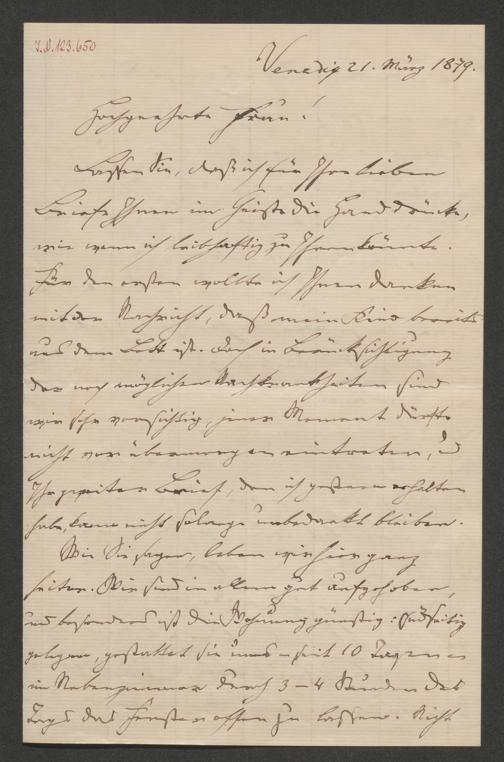 I.N.123.650
Venedig 21. März 1879.
Hochgeehrte Frau!
Lassen Sie, daß ich für Ihre lieben
Briefe Ihnen im Geiste die Hand drücke,
wie wenn ich leibhaftig zu Ihnen könnte.
Für den ersten wollte ich Ihnen danken
mit der Nachricht, daß mein Kind bereits
aus dem Bett ist. Doch in Berücksichtigung
der noch möglichen Nachkrankheiten sind
wir sehr vorsichtig, jener Moment dürfte
nicht vor übermorgen eintreten, u
Ihr zweiter Brief, den ich gestern erhalten
habe, kann nicht solange unbedankt bleiben.
Wie Sie sagen, leben wir hier ganz
heiter. Wir sind in allem gut aufgehoben,
und besonders ist die Wohnung günstig: südseitig
gelegen, gestattet sie uns seit 10 Tagen
im Nebenzimmer durch 3–4 Stunden des
Tags das Fenster offen zu lassen. Nicht